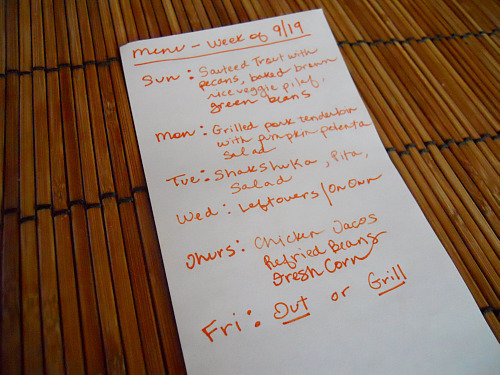 Menu - Week of 9/19
Sun: Sauteed Trout with
pecans, baked brown
rice veggie pilaf,
green beans
Mon: Grilled pork tenderloin
with pumpkin polenta
salad
Tue: Shakshuka, Pita,
Salad
Wed: Leftovers/On Own
Thurs: Chicken Tacos
Refried Beans
Fresh Corn
Fri: Out or Grill